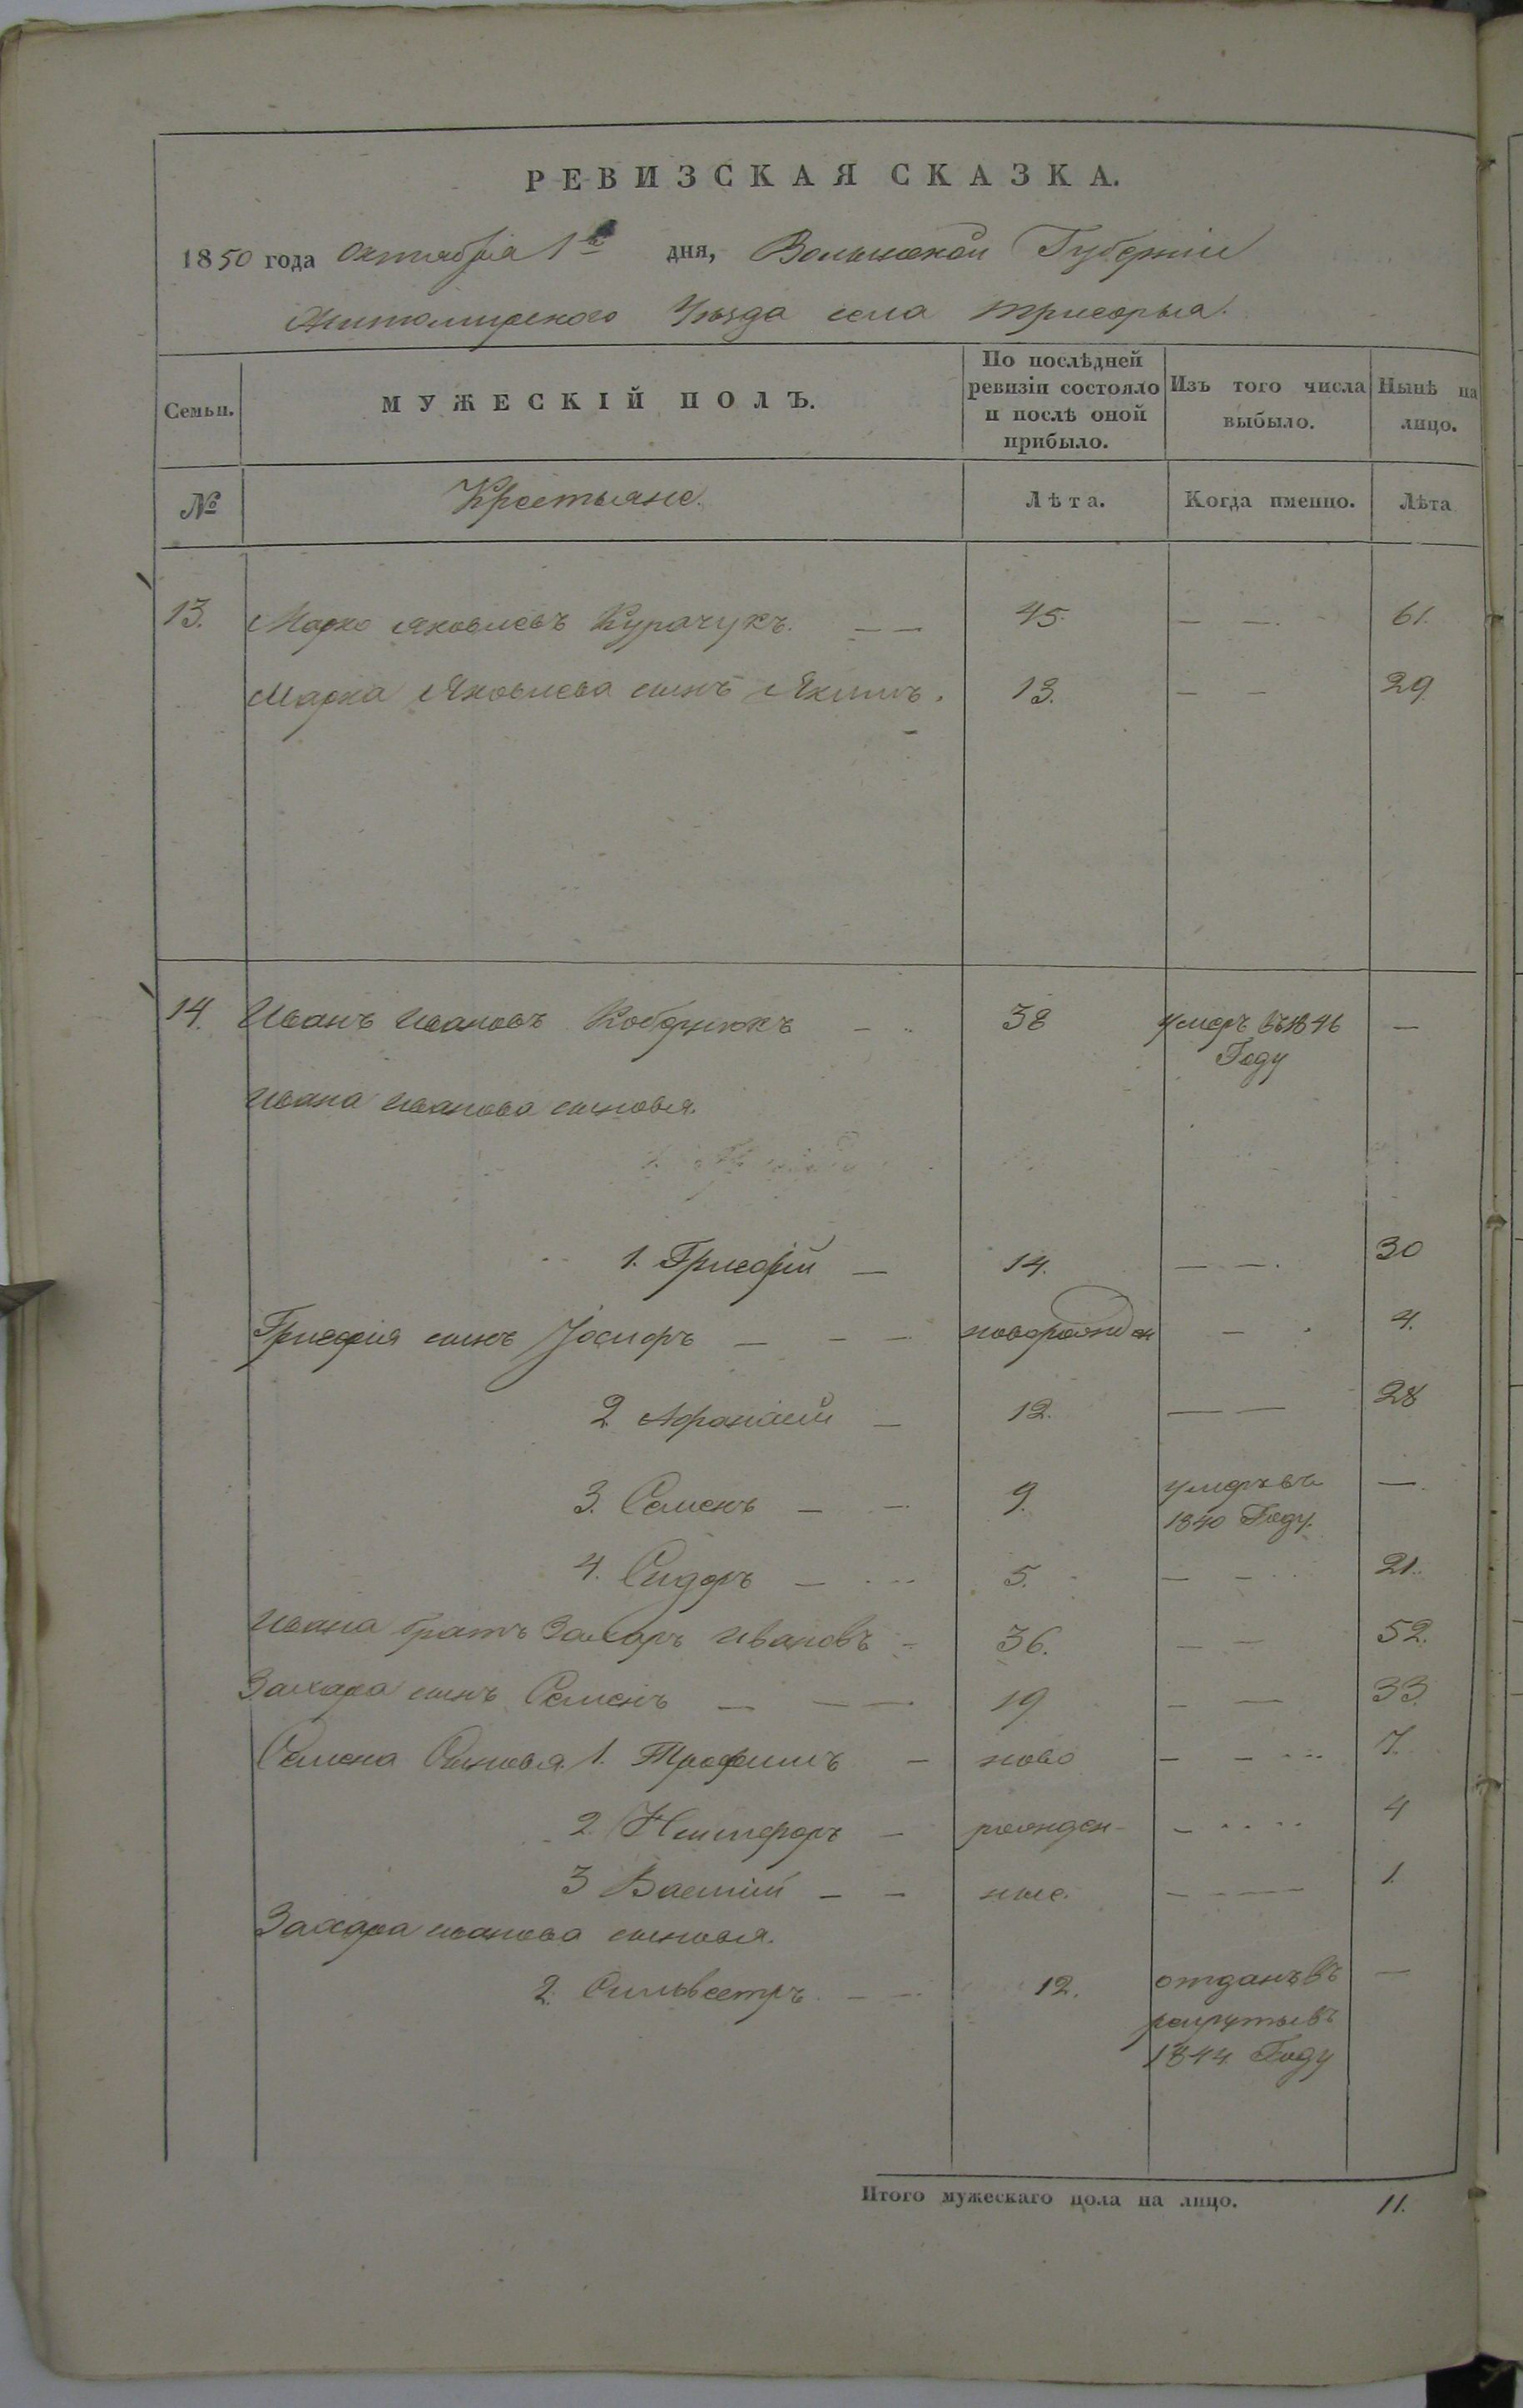 РЕВИЗСКАЯ СКАЗКА.
1850 года Октября 1го дня, Волынской Губерніи
Житомирского Уѣзда села Тригорья.
Семьи. МУЖЕСКІЙ ПОЛЪ. По послѣдней ревизіи состояло и послѣ оной прибыло. Изъ того числа выбыло. Нынѣ на лицо.
№ Крестьяне. Лѣта. Когда именно. Лѣта
13. Марко Яковлевъ Курачукъ. — — 45. — —. 61.
Марка Яковлева сынъ Якимъ. 13. — — 29.
14. Иванъ Ивановъ Кобернюкъ — 38 умеръ въ 1846 —
Году
Ивана Иванова сыновья.
1. Григорій — 14. — —. 30
Григорія сынъ Іосифъ — — — новорожден — . 4.
2 Афанасій — 12. — — 28
3. Семенъ — — 9. умеръ въ —
1840 Году.
4. Сидоръ — 5. — — 21.
Ивана братъ Захаръ Ивановъ — 36. — — 52.
Захара сынъ Семенъ — — — 19 — — 33.
Семена Сыновья 1. Трофимъ — ново — — 7.
2. Никифоръ — рожден- — 4
3 Василій — — ные. — — 1.
Захара Иванова сыновья.
2. Сильвестръ — — 12. отданъ въ —
рекруты въ
1844 Году
Итого мужескаго пола на лицо. 11.